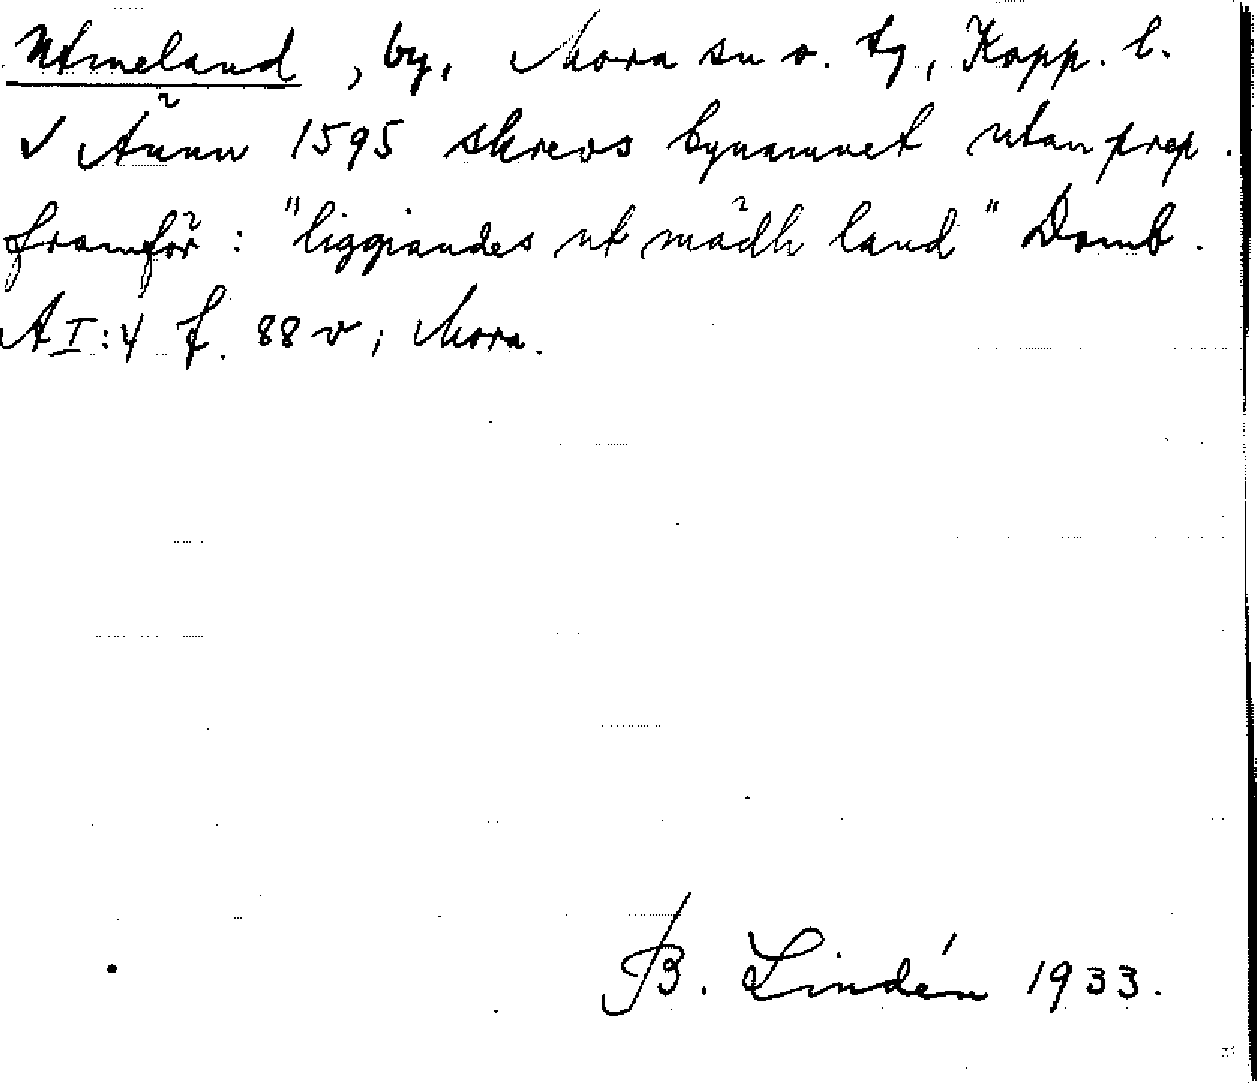 Utmeland, by, Mora sn o. tg, Kopp. l.
√ Ännu 1595 skrevs bynamnet utan prep.
framför: "liggiandes ut mädh land" Domb.
A I:4 f. 88 v, Mora.
B. Lindén 1933.